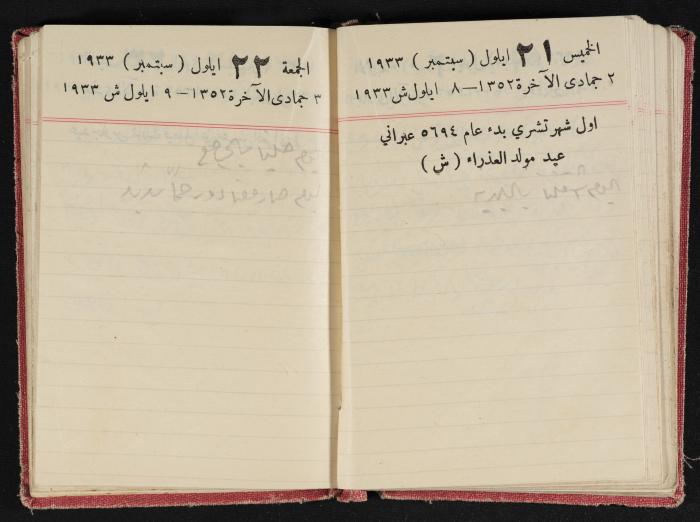 الخميس ٢١ ايلول ( سبتمبر ) ١٩٣٣
٢ جمادى الآخرة ١٣٥٢ — ٨ ايلول ش ١٩٣٣
اول شهر تشري بدء عام ٥٦٩٤ عبراني
عيد مولد العذراء ( ش )
اليوم
الجمعة ٢٢ ايلول ( سبتمبر ) ١٩٣٣
٣ جمادى الآخرة ١٣٥٢ — ٩ ايلول ش ١٩٣٣
اليوم
اليوم صار